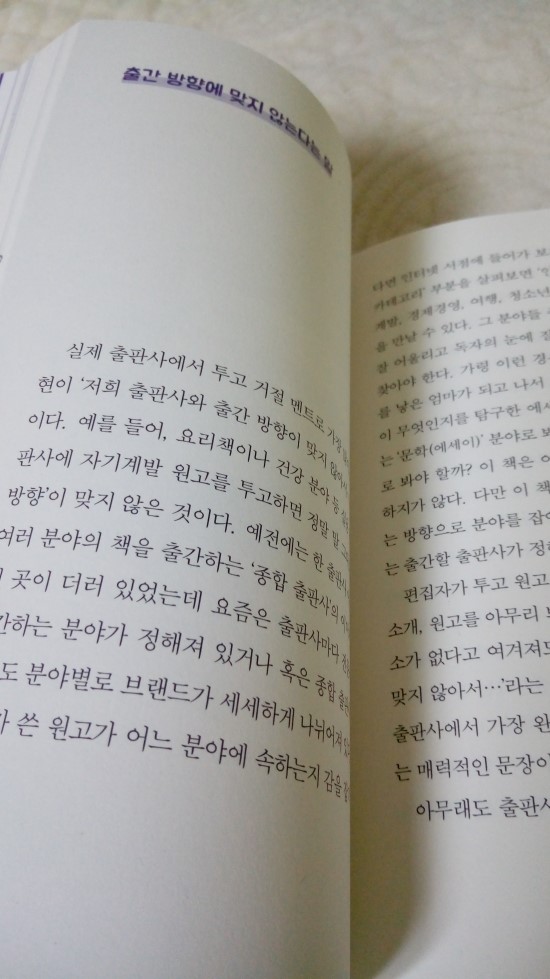 출간 방향에 맞지 않는다는 말
실제 출판사에서 투고 거절 멘트로 가장
현이 ‘저희 출판사와 출간 방향이 맞지 않아서
이다. 예를 들어, 요리책이나 건강 분야 등
판사에 자기계발 원고를 투고하면 정말 말
방향’이 맞지 않은 것이다. 예전에는 한 출판사
여러 분야의 책을 출간하는 ‘종합 출판사’의
곳이 더러 있었는데 요즘은 출판사마다
간하는 분야가 정해져 있거나 혹은 종합
도 분야별로 브랜드가 세세하게 나뉘어져
쓴 원고가 어느 분야에 속하는지 감을
다면 인터넷 서점에 들어가
카테고리’ 부분을 살펴보면
계발, 경제경영, 여행, 청소년
을 만날 수 있다. 그 분야들
잘 어울리고 독자의 눈에
찾아야 한다. 가령 이런
를 낳은 엄마가 되고 나서
이 무엇인지를 탐구한
는 ‘문학(에세이)’ 분야로
로 봐야 할까? 이 책은
하지가 않다. 다만 이 책
는 방향으로 분야를
는 출간할 출판사가
편집자가 투고 원고
소개, 원고를 아무리
소가 없다고 여겨져도
맞지 않아서…’라는
출판사에서 가장
는 매력적인 문장이
아무래도 출판사